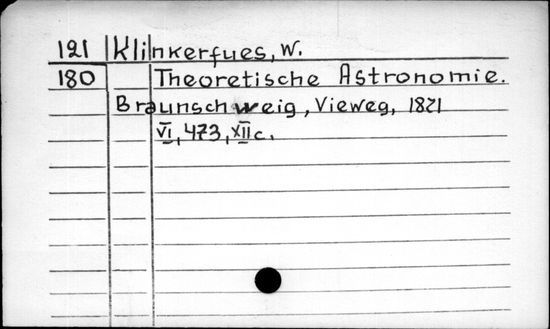 121 Klinkerfues, W.
180 Theoretische Astronomie.
Braunschweig, Vieweg, 1821
VI, 473, XII c.